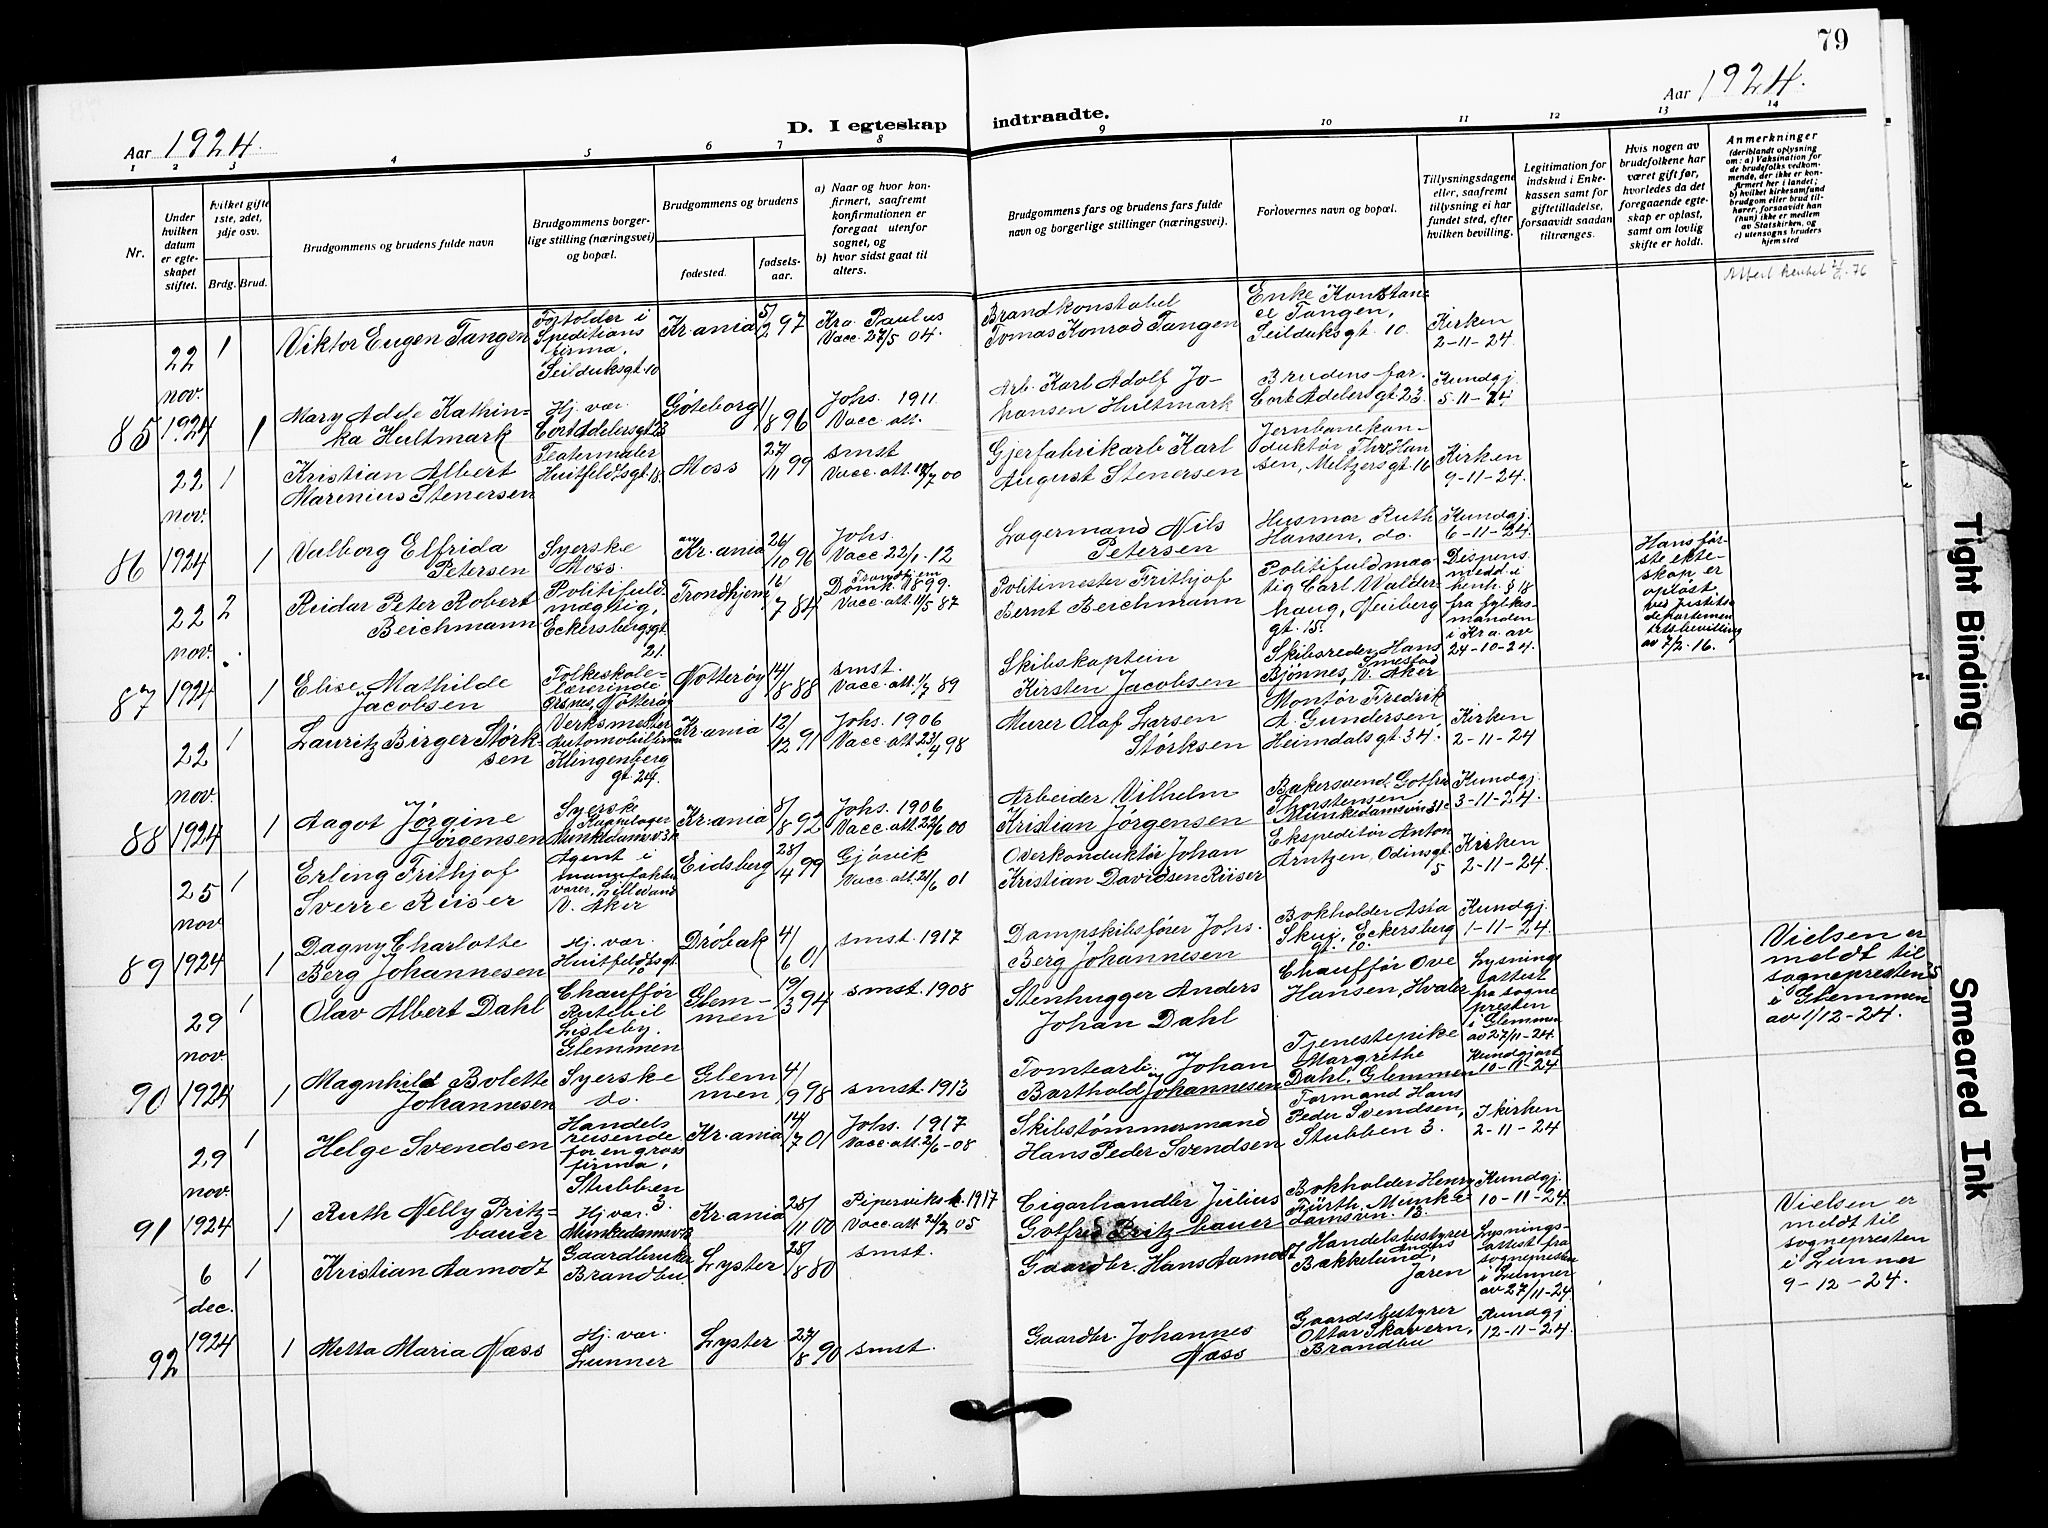 79
Aar 1924.
D. I egteskap
indtraadte.
Aar 1924.
1 2 3 4 5 6 7 8
9 10 11 12 13 14
Nr.
Under hvilken datum er egteskapet stiftet.
Hvilket gifte 1ste, 2det, 3dje osv.
Brdg. Brud.
Brudgommens og brudens fulde navn
Brudgommens borgerlige stilling (næringsvei) og bopæl.
Brudgommens og brudens
fødested.
fødselsaar.
a) Naar og hvor konfirmert, saafremt konfirmationen er foregaat utenfor sognet, og
b) hvor sidst gaat til alters.
Brudgommens fars og brudens fars fulde navn og borgerlige stillinger (næringsvei).
Forlovernes navn og bopæl.
Tillysningsdagene eller, saafremt tillysning ei har fundet sted, efter hvilken bevilling.
Legitimation for indskud i Enkekassen samt for giftetilladelse, forsaavidt saadan tiltrænges.
Hvis nogen av brudefolkene har været gift før, hvorledes da det foregaaende egteskap er opløst, samt om lovlig skifte er holdt.
Anmerkninger
(deriblandt oplysning om: a) Vaksination for de brudefolks vedkommende, der ikke er konfirmert her i landet; b) hvilket kirkesamfund brudgom eller brud tilhører, forsaavidt han (hun) ikke er medlem av Statskirken, og c) utensogns bruders hjemsted
85
22 nov. 1924
1
Viktor Eugen Tangen
Speditions firma, Seilduksgt. 10
Kr.ania
5/2 97
Kra. Paulus
Vacc. 27/5 04.
Brandkonstabel
Tomas Konrad Tangen
Enke Konstance Tangen,
Seilduksgt. 10.
Kirken
2-11-24
1
Mary Adele Kathinka Hultmark
Hj. vær.
Cort Adelersgt. 23
Gøteborg
11/8 96
Johs. 1911
Vacc. att.
Arb. Karl Adolf Johansen Hultmark
Brudens far.
Cort Adelersgt. 23.
Kundgj.
5-11-24.
86
22 nov. 1924
1
Kristian Albert
Marinius Stenersen
Teatermaler
Huitfeldtsgt. 18.
Moss
27/11 99
smst
Vacc. att. 12/7 00
Gjerfabrikarb. Karl
August Stenersen
Jernbanekonduktør Thv. Hansen, Meltzersgt. 16
Kirken
9-11-24.
1
Valborg Elfrida
Petersen
Syerske
Moss.
Kr.ania
26/10 96
Johs.
Vacc 22/1. 12
Lagermand Nils
Petersen
Husmor Ruth
Hansen, do.
Kundgj.
6-11-24.
87
22 nov. 1924
2
Reidar Peter Robert
Beichmann
Politifuldmægtig,
Eckersbergsgt. 21.
Trondhjem
16/7 84
Trondhjem
Domk. 1899.
Vacc. att. 11/5 87
Politimester Frithjof
Bernt Beichmann
Politifuldmægtig Carl Walderhaug, Neuberggt. 15.
Dispens. medd. i henh. § 18 fra fylkesmanden i Kra. av 24-10-24.
Hans første ekteskap er opløst ved Justitsdepartementets bevilling av 7/2. 16.
1
Elise Mathilde
Jacobsen
Folkeskolelærerinde
Ørsnes, Nøtterøy
Nøtterøy
14/8 88
smst.
Vacc. att. 1/7 89
Skibskaptein
Kirsten Jacobsen
Skibsreder Hans
Bjønnes, Smestad
V. Aker
88
22 nov. 1924
1
Lauritz Birger Størksen
Verksmester
Automobilfirma
Klingenberggt. 24.
Kr.ania
12/12 91
Johs. 1906
Vacc. att. 23/4 98
Murer Olaf Larsen
Størksen
Montør Fredrik
A. Gundersen
Heimdalsgt. 34.
Kirken
2-11-24
1
Aagot Jørgine
Jørgensen
Syerske
Munkedamsv.
Kr.ania
8/8 92
Johs. 1906
Vacc. att. 22/6 00
Arbeider Vilhelm
Kristian Jørgensen
Bakersvend Gotfred
Thorstensen
Munkedamsvn.
Kundgj.
3-11-24.
89
25 nov 1924
1
Erling Frithjof
Sverre Riiser
Agent i manufakturvarer, Lillevand
V. Aker
Eidsberg
28/4 99
Gjøvik
Vacc. att. 21/6 01
Overkonduktør Johan
Kristian Davidsen Riiser
Ekspeditør Anton
Arntzen, Odinsgt. 5
Kirken
2-11-24.
1
Dagny Charlotte
Berg Johannesen
Hj. vær.
Huitfeldtsgt.
Drøbak
4/6 01
smst. 1917
Dampskibsfører Johs.
Berg Johannesen
Bokholder Asta
Skuj, Eckersberggt. 10.
Kundgj.
1-11-24.
90
29 nov. 1924
1
Olav Albert Dahl
Chauffør
Rutebil
Lisleby.
Glemmen
Glemmen
19/3 94
smst. 1908
Stenhugger Anders
Johan Dahl
Chauffør Ove
Hansen, Hvaler
Lysningsattest fra sognepresten i Glemmen av 27/11-24.
Vielsen er meldt til sognepresten i Glemmen av 1/12-24.
1
Magnhild Bolette
Johannesen
Syerske
do.
Glemmen
4/9 98
smst. 1913
Tomtearb. Johan
Barthold Johannesen
Tjenestepike
Margrethe
Dahl, Glemmen
Kundgjort
10-11-24
91
29 nov. 1924
1
Helge Svendsen
Handelsreisende for engrosfirma,
Stubben 3.
Kr.ania
14/7 01
Johs. 1917
Vacc. att. 2/6-08
Skibstømmermand
Hans Peder Svendsen
Formand Hans
Peder Svendsen,
Stubben 3.
I kirken
2-11-24
1
Ruth Nelly Pritzbauer
Hj. vær.
Munkedamsv.
Kr.ania
28/11 00
Piperviks k. 1917
Vacc. att. 21/2 05
Cigarhandler Julius
Gotfred Pritzbauer
Bokholder Henry
Fürth, Munkedamsvn. 13.
Kundgj.
10-11-24.
92
6 dec. 1924
1
Kristian Aamodt
Gaardbruker
Brandbu
Lyster
28/8 80
smst.
Gaardbr. Hans Aamodt
Handelsbestyrer
Anders Bakkelund,
Jaren
Lysningsattest fra sognepresten i Lunner av 27/11-24.
Vielsen er meldt til sognepresten i Lunner
9-12-24.
1
Metta Maria Næss
Hj. vær.
Lunner
Lyster
27/8 90
smst.
Gaardbr. Johannes
Næss
Gaardsbestyrer
Ottar Skavern,
Brandbu
Kundgj
12-11-24.
Tight Binding
Smeared Ink